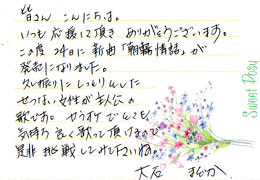 皆さん こんにちは。
いつも応援して頂き ありがとうございます。
この度 24日に 新曲「朝霧情話」が
発売になりました。
久し振りに しっとりとした
せつない 女性が主人公の
歌です。カラオケでもとても
気持ち良く歌って頂けますので
是非 挑戦してみて下さいね。
大石 まどか
Sweet Posy